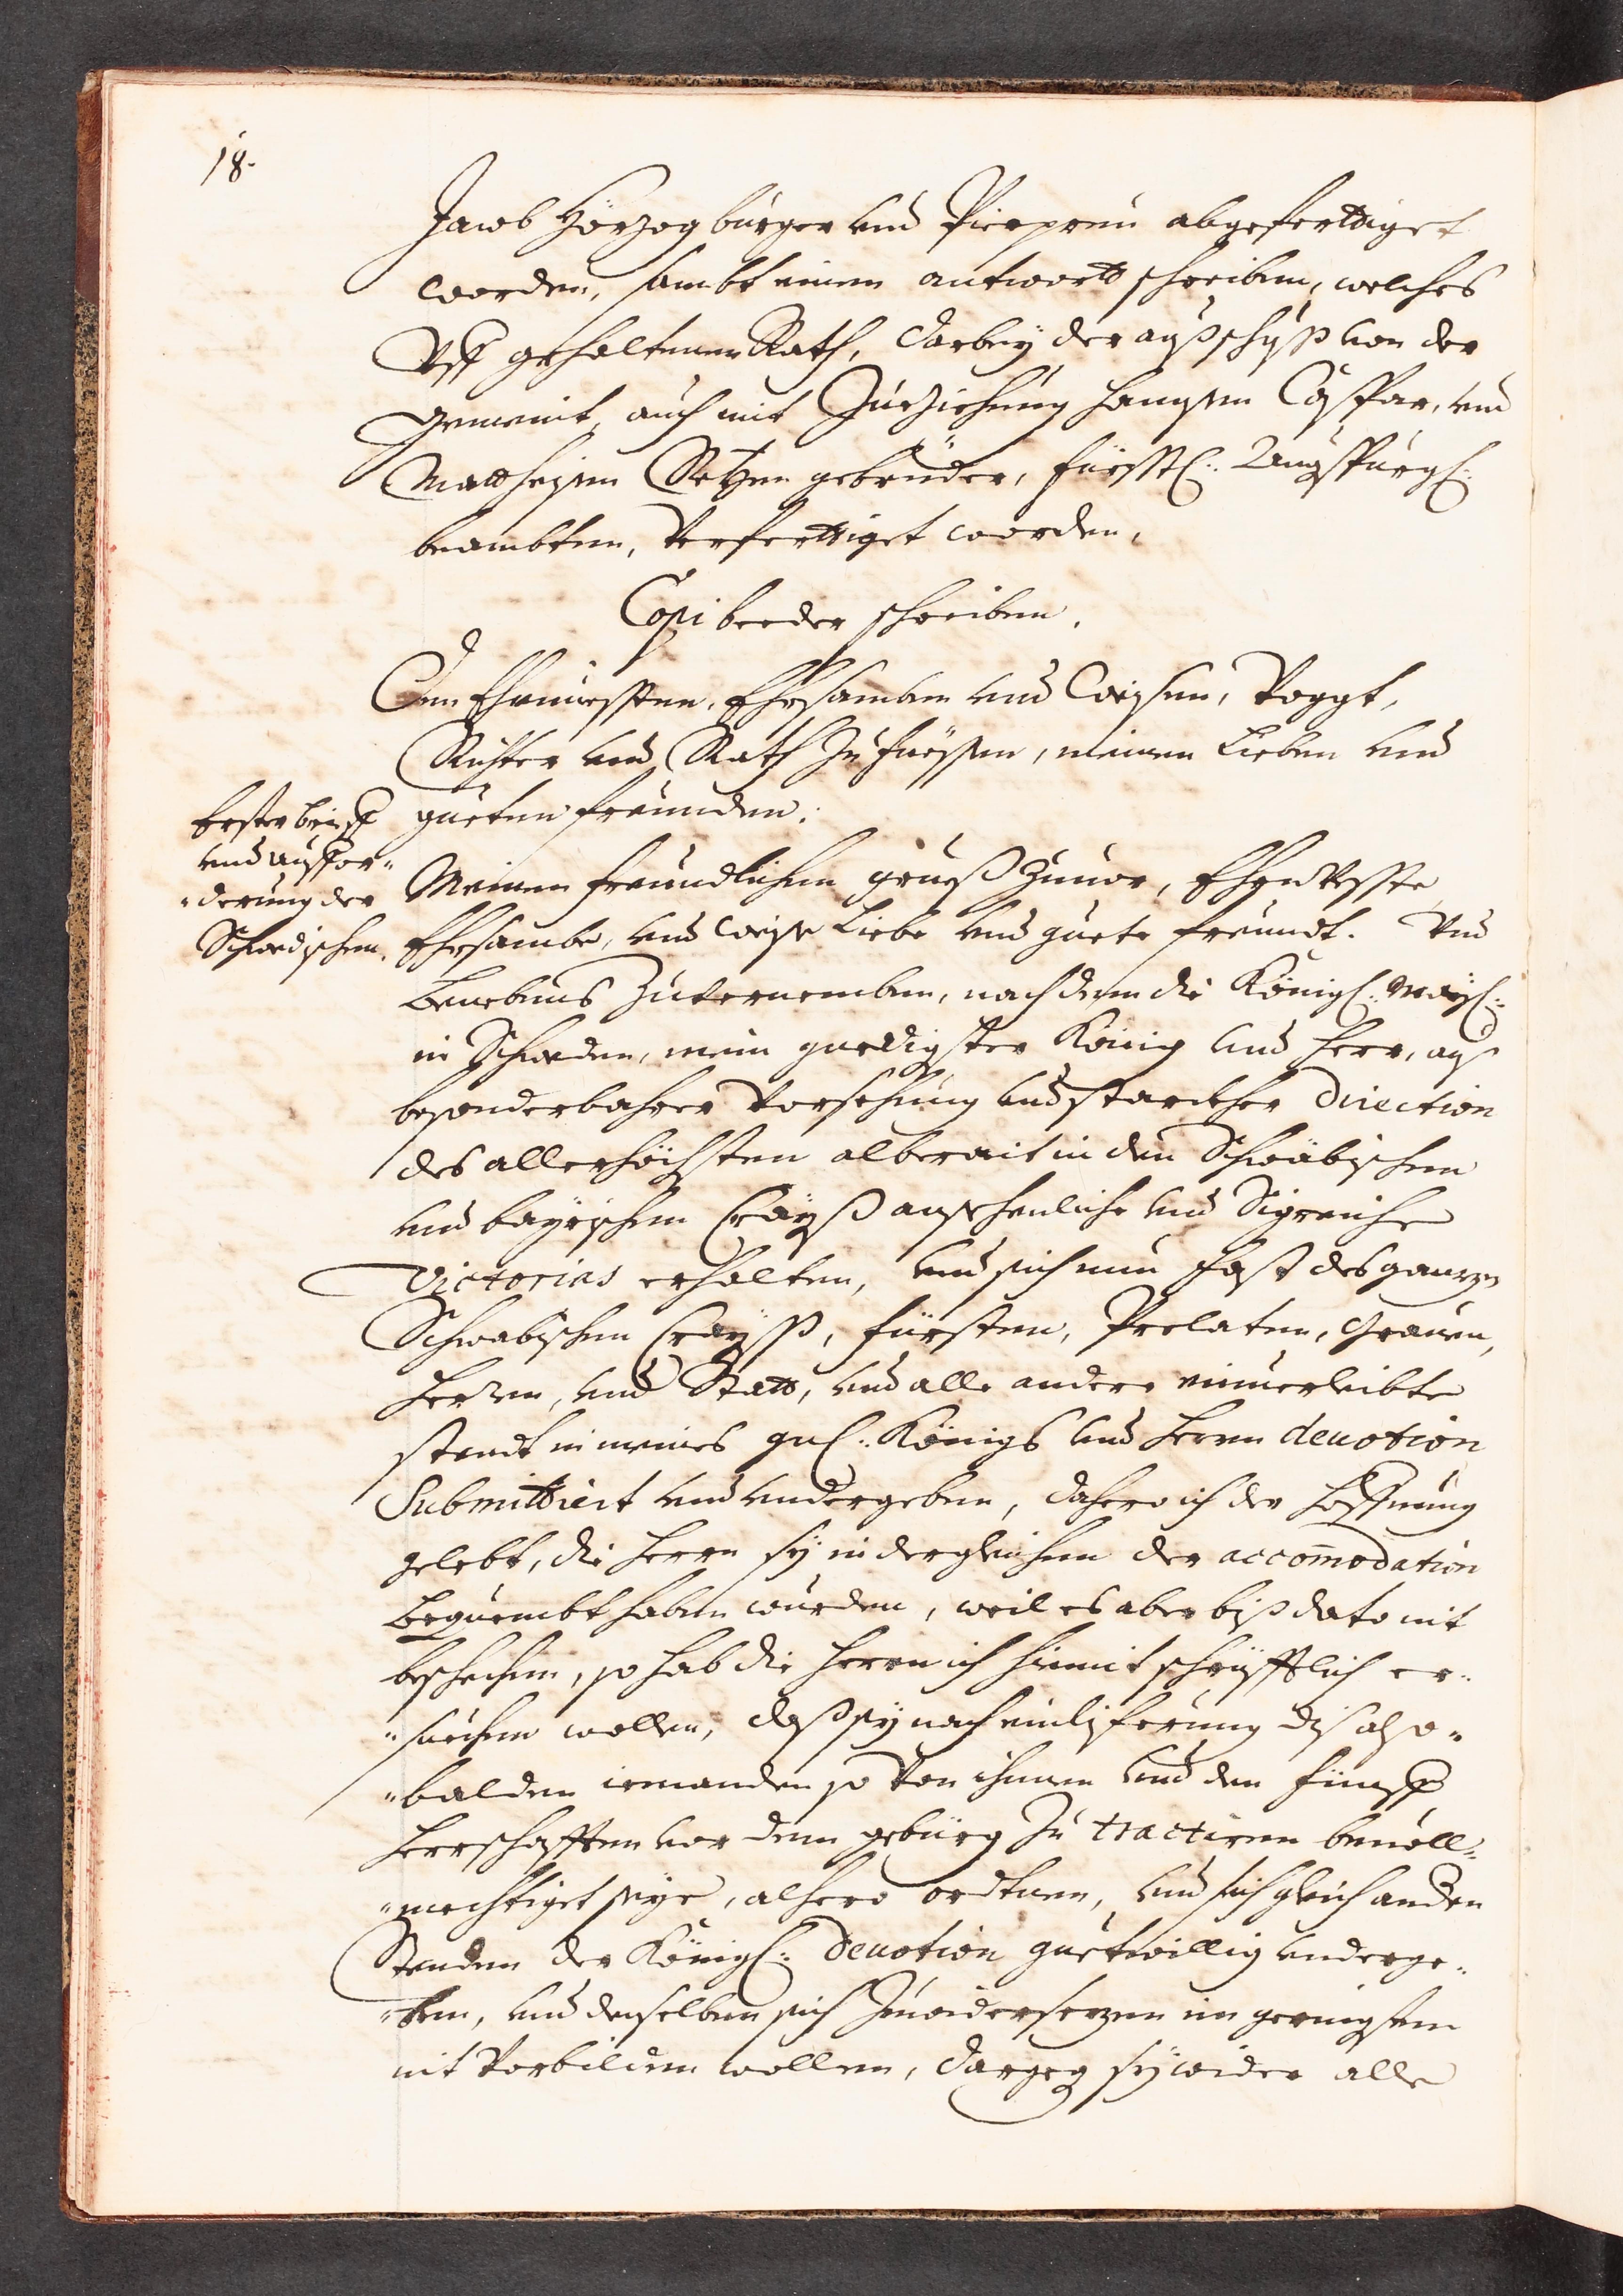 18.
Jacob Hörzog burger und Pierpreu abgeferttiget
worden, sambt einem antwortt schreiben, welches
Vff gehaltenem Rath, darbey der außschuß von der
gemeint, auch mit Zueziehung hansen Caspar, und
Matthesen gebrüder, fürstl: Augspurgl:
beambten, Verferttiget worden,
Copi beeder schreiben.
Den Ehrnvessten, Ehrsamben und Weysen, Voggt,
Richter und Rath zu füessen, meinen Lieben und
gueten freunden.
Erster brieff
und aufffor-
-derung der
Schwedischen.
Meinen freundlichen grueß Zuuor, Ehrnvesste
Ehrsambe, und weyse Liebe und guete freundt. Und
benebens Zuvernemben, nach dem die Königl: Mayl:
in Schweden, mein gnedigster König und Herr, auß
besonderbahrer Vorsehung und starckher direction
des allerhöchsten alberait in den Schwäbischen
und bayrischen Crayß ansehenliche und Sigreiche
Victorias erhalten, und sich nun fast des ganzen
Schwabischen Crayß, fürsten, Prelaten, Grauen,
Herren, und Statt, und alle andere einuerleibte
standt in meines gnl: Königs und Herrn deuotion
Submittiert und undergeben, dahero ich der Hoffnung
gelebt, die Herrn sy in dergleichen der accomodation
bequembt haben wurden, weil es aber biß dato nit
beschechen, so hab die Herrn ich hiemit schrifftlich er-
-suechen wollen, daß sy nach einliferung diß also-
-balden iemanden so Von ihnen und den fünff
Herrschafften vor dem gebürg zu tractiren beuoll-
-mechtiget seye, alhero ordtnen, und sich gleich andern
Stenden der Königl: deuotion guetwillig underge-
-ben, und denselben sich Zuwidersezen im geringsten
nit Vorbilden wollen, dargeg sy wider alle